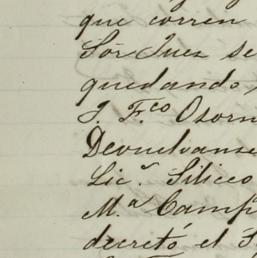 que corren
Sor Juez se
quedando,
J. F.co Osorn
Devuelvanse
Lic.o Siliceo
M.a Camp
decretó el S